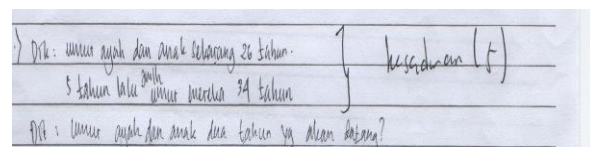 ) Dik : umur ayah dan anak sekarang 26 tahun. kesadaran (5)
5 tahun lalu jmlh umur mereka 34 tahun
Dit : umur ayah dan anak dua tahun yg akan datang?